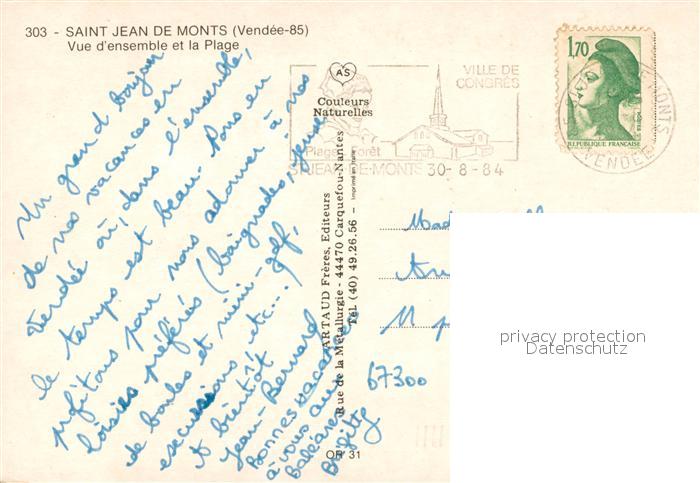 303 - SAINT JEAN DE MONTS (Vendée-85)
Vue d'ensemble et la Plage
Un grand bonjour
de nos vacances en
Vendée où, dans l'ensemble,
le temps est beau. Nous en
profitons pour nous adonner à nos
loisirs préférés (baignades, jeux
de boules et mini-golf,
excursions, etc...)
A bientôt
Jean-Bernard
Bonnes vacances
à vous aux
Baléares
Brigitte
AS
Couleurs
Naturelles
ARTAUD Frères, Editeurs
Rue de la Métallurgie - 44470 Carquefou-Nantes
Tél. (40) 49.26.56 - Imprimé en Italie
OR 31
VILLE DE
CONGRÈS
Plage Forêt
ST JEAN-DE-MONTS 30-8-84
1,70
REPUBLIQUE FRANÇAISE
MONTS
VENDEE
67300
privacy protection
Datenschutz